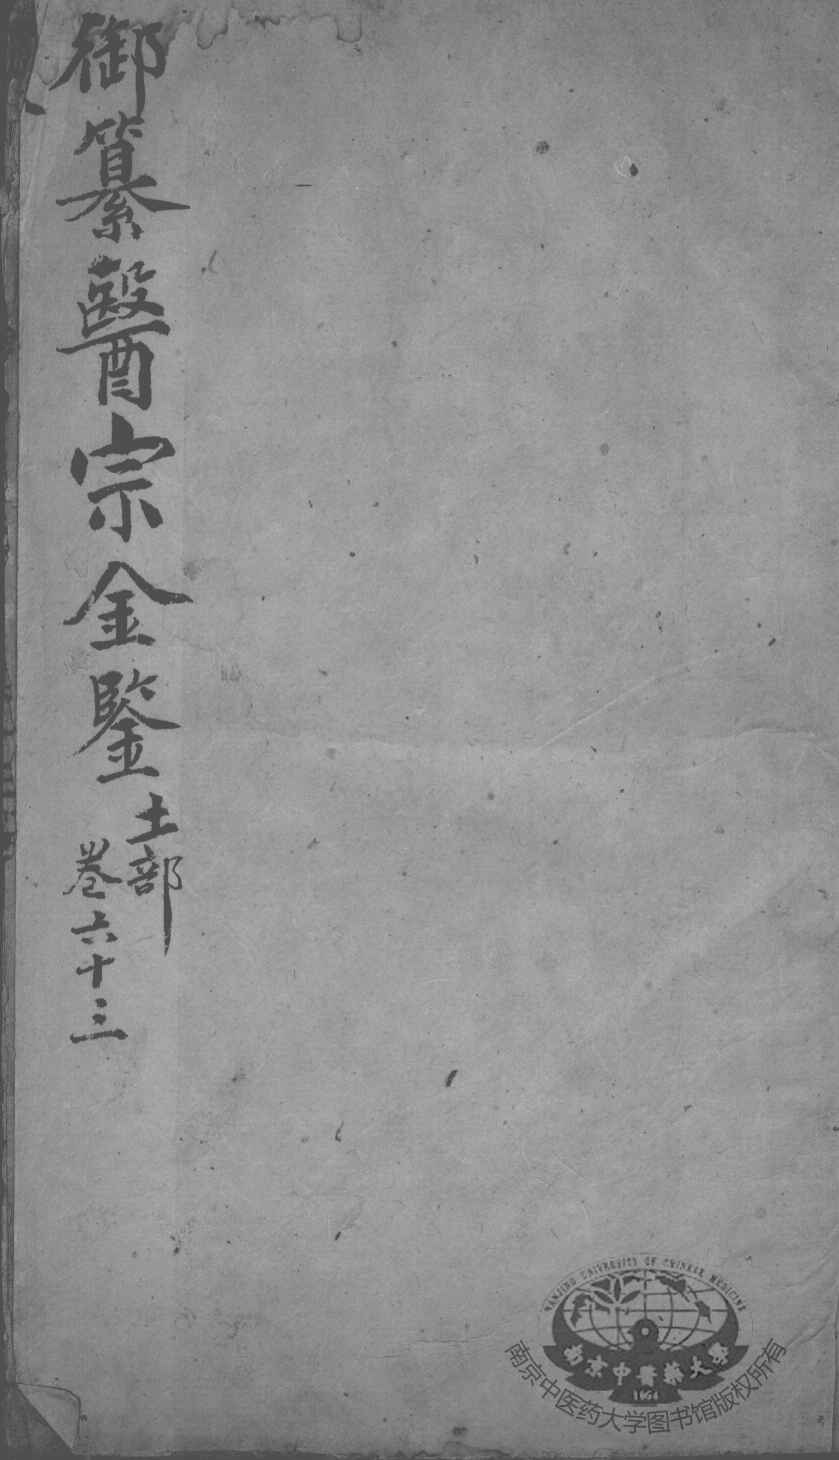 御纂醫宗金鑒
土部
卷六十三
NANJING UNIVERSITY OF CHINESE MEDICINE
南京中醫藥大學
1954
南京中医药大学图书馆版权所有